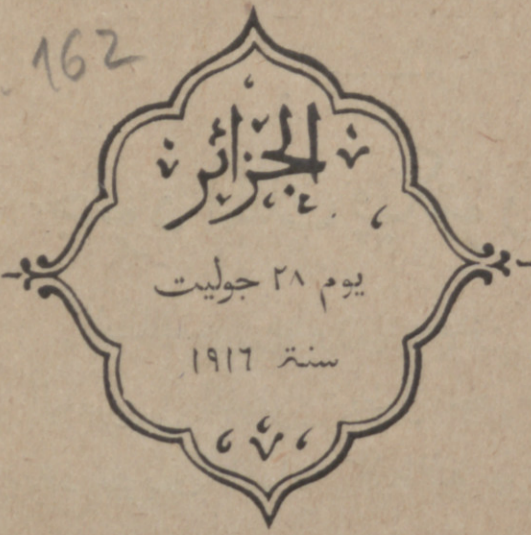 162
الجزائر
يوم ٢٨ جوليت
سنة ١٩١٦